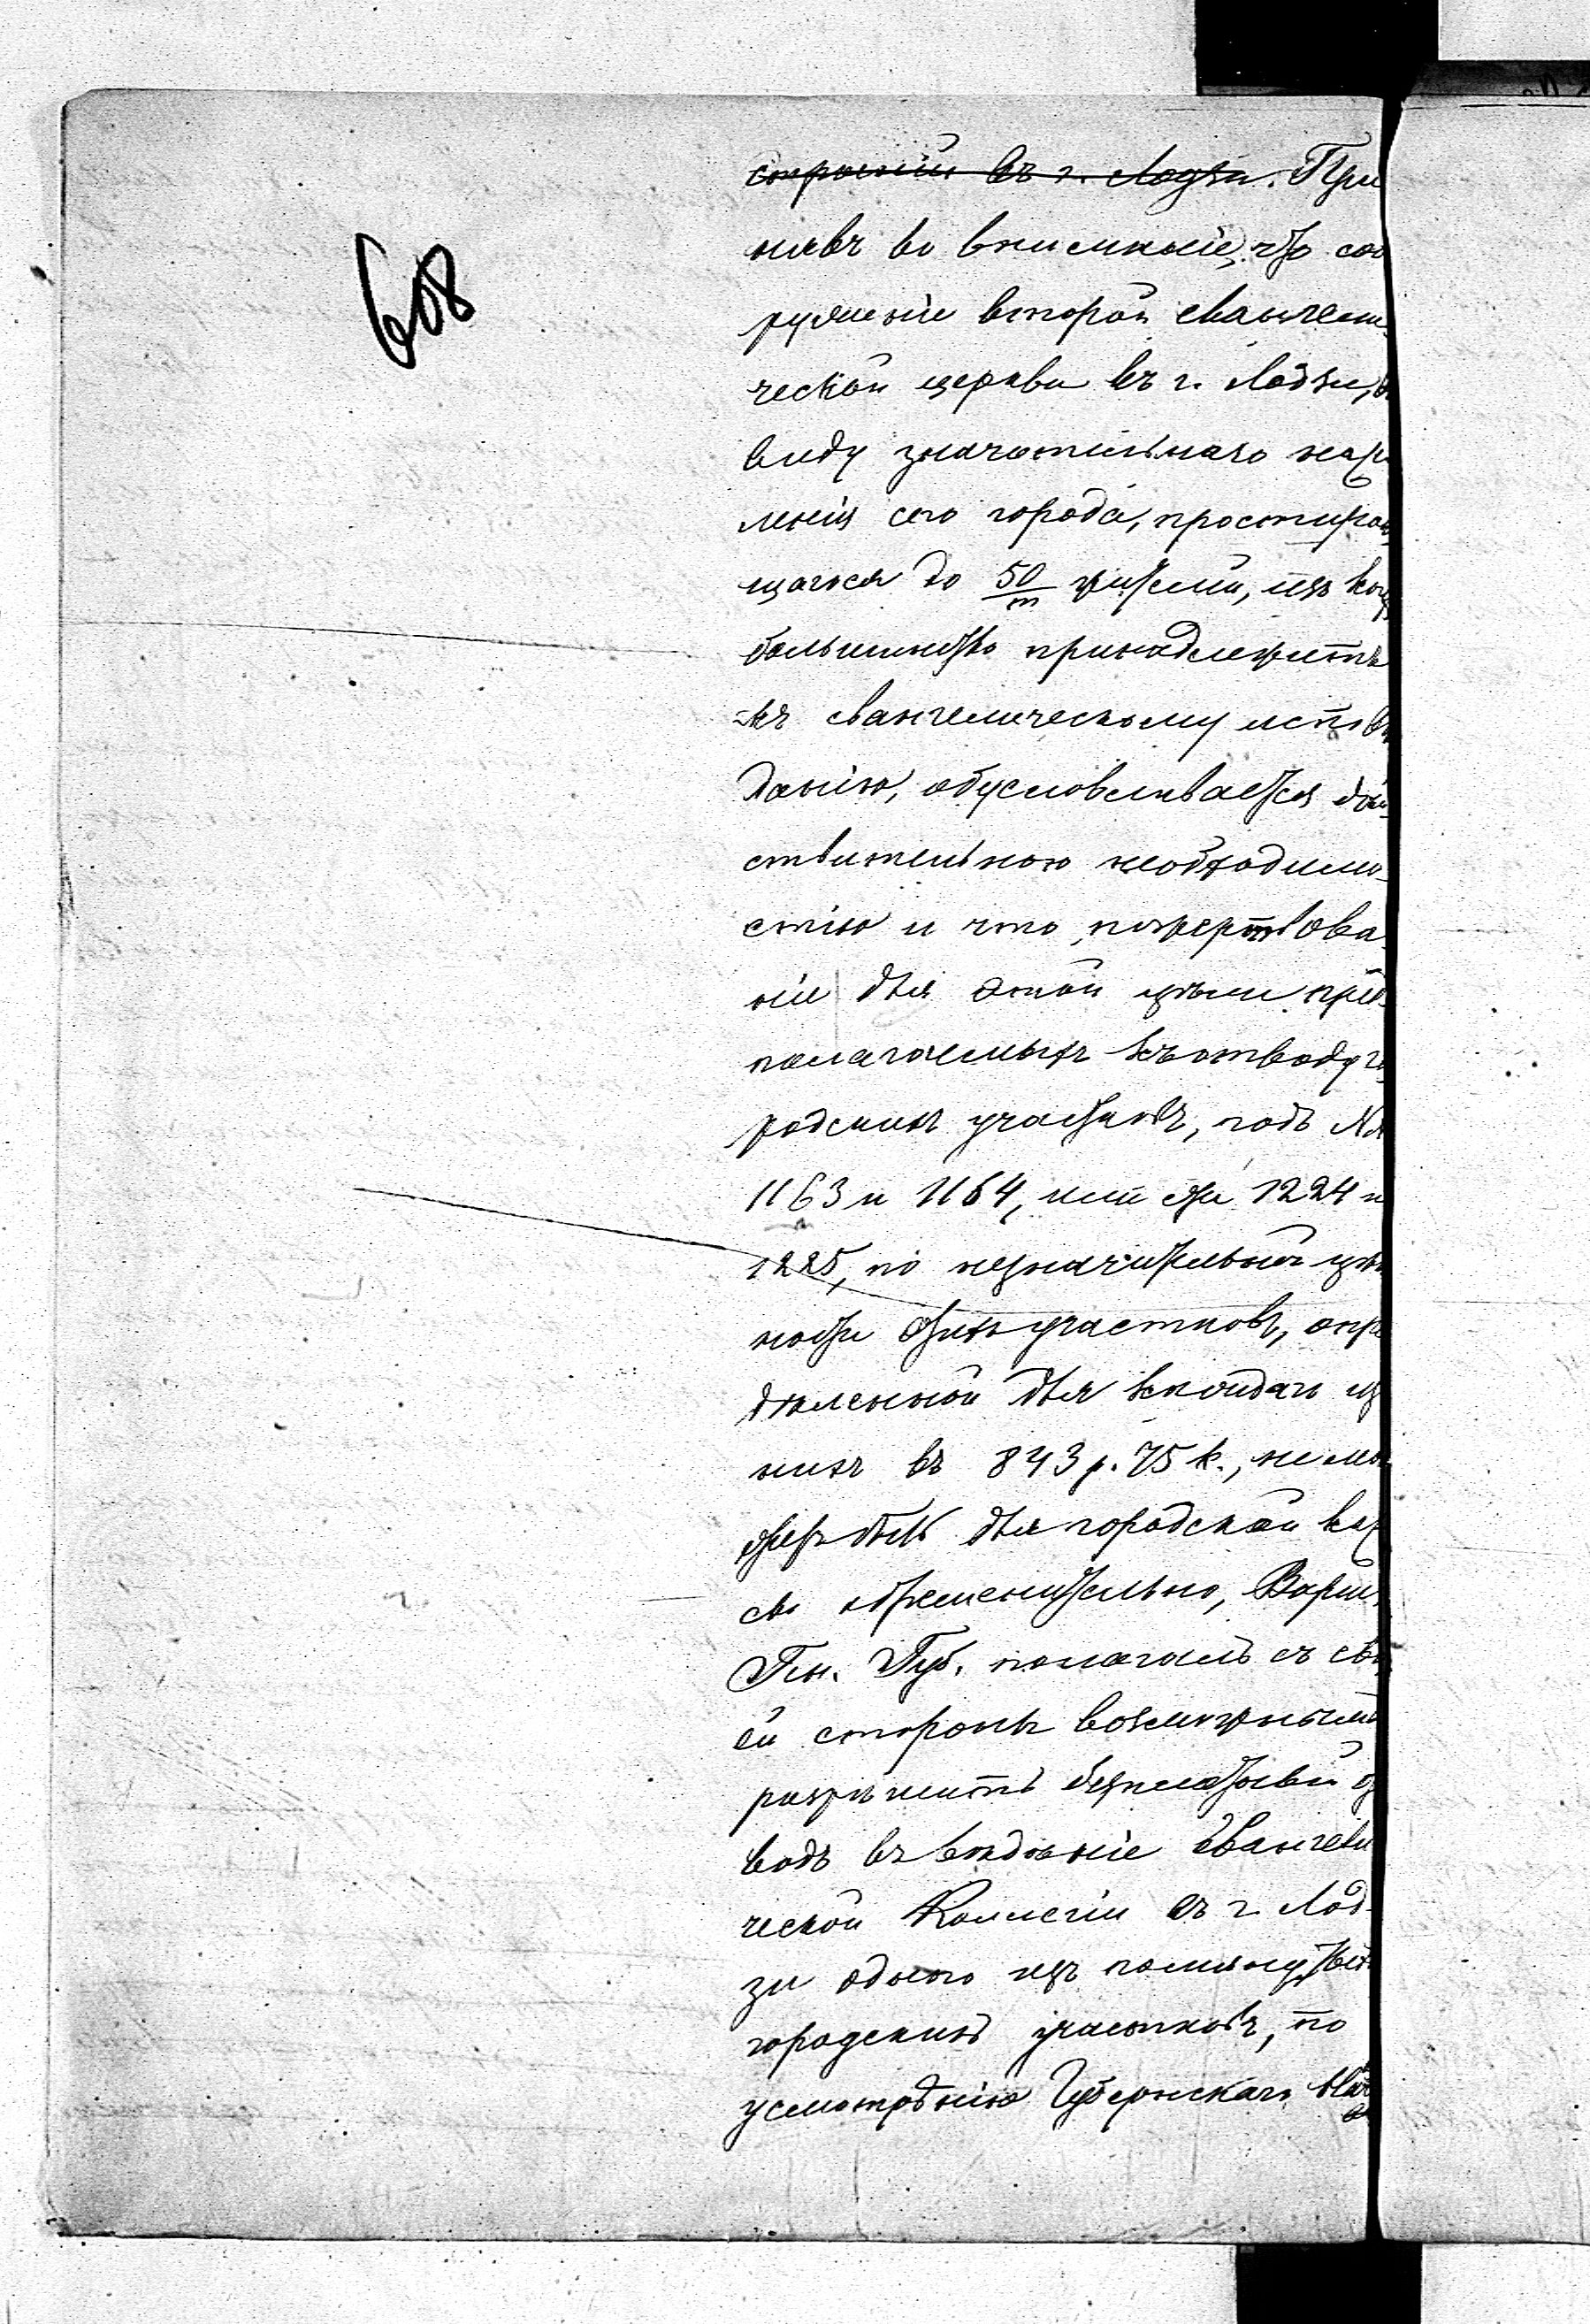 608
строеній въ г. Лодзи. При
нявъ во вниманіе, что соо
руженіе второй евангели
ческой церкви въ г. Лодзи, въ
виду значительнаго насе
ленія сего города, простираю
щагося до 50/т жителей, изъ коихъ
большинство принадлежитъ
къ евангелическому испове
данію, обусловливается дѣй
ствительною необходимо
стію и что пожертвова
ніе для этой цѣли пред
полагаемыхъ къ отводу го
родскихъ участковъ, подъ №№
1163 и 1164, или же 1224 и
1225, по незначительной цѣн
ности этихъ участковъ, опре
дѣленной для каждаго изъ
нихъ въ 843 р. 75 к., не мо
жетъ быть для городской кас
сы обременительно, Варш.
Ген. Губ. полагаетъ съ сво
ей стороны возможнымъ
разрѣшить безплатный от
водъ въ владѣніе евангели
ческой Коллегіи въ г. Лод-
зи одного изъ помянутыхъ
городскихъ участковъ, по
усмотрѣнію Губернскаго